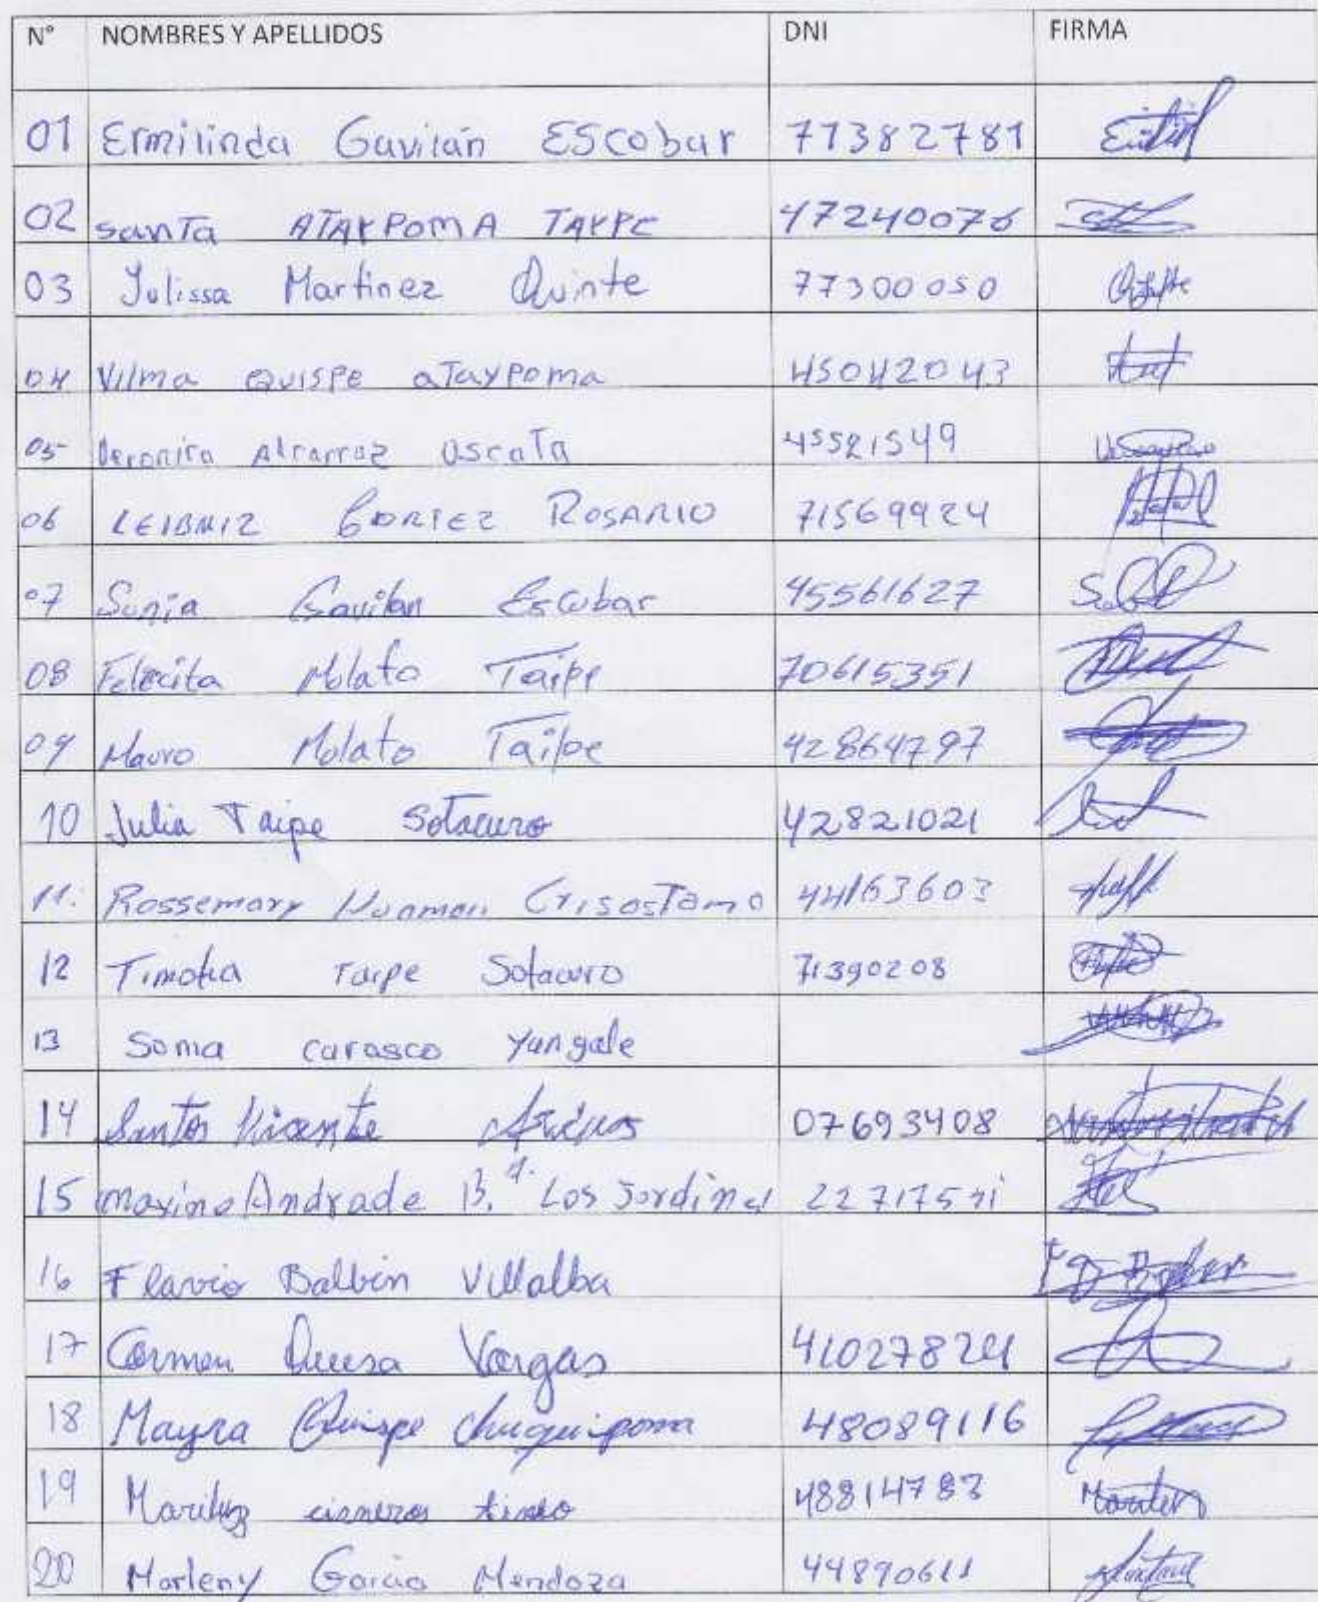 N° NOMBRES Y APELLIDOS DNI FIRMA
01 Ermilinda Gavilán Escobar 77382781
02 santa ATAYPOMA TAYPE 47240076
03 Yulissa Martinez Quinte 77300050
04 Vilma QUISPE aTayPoma 45042043
05 Veronica Alcarraz oscaTa 45521549
06 LEIBNIZ CORTEZ ROSARIO 71569924
07 Sonia Gavilan Escobar 45561627
08 Felecita Molato Taipe 70615351
09 Mauro Molato Taipe 42864797
10 Julia Taipe Sotacuro 42821021
11. Rossemary Huaman CrisosTomo 44163603
12 Timotea Taipe Sotacuro 71390208
13 Sonia carasco Yangale
14 Santos Vicente 07693408
15 Maximo Andrade B. Los Jordines
16 Flavio Balbin Villalba
17 Carmen Vargas
18 Mayra Quispe Chuquipoma 48089116
19 Mariluz cisneros tineo 48814783
20 Marleny Garcia Mendoza 44890611